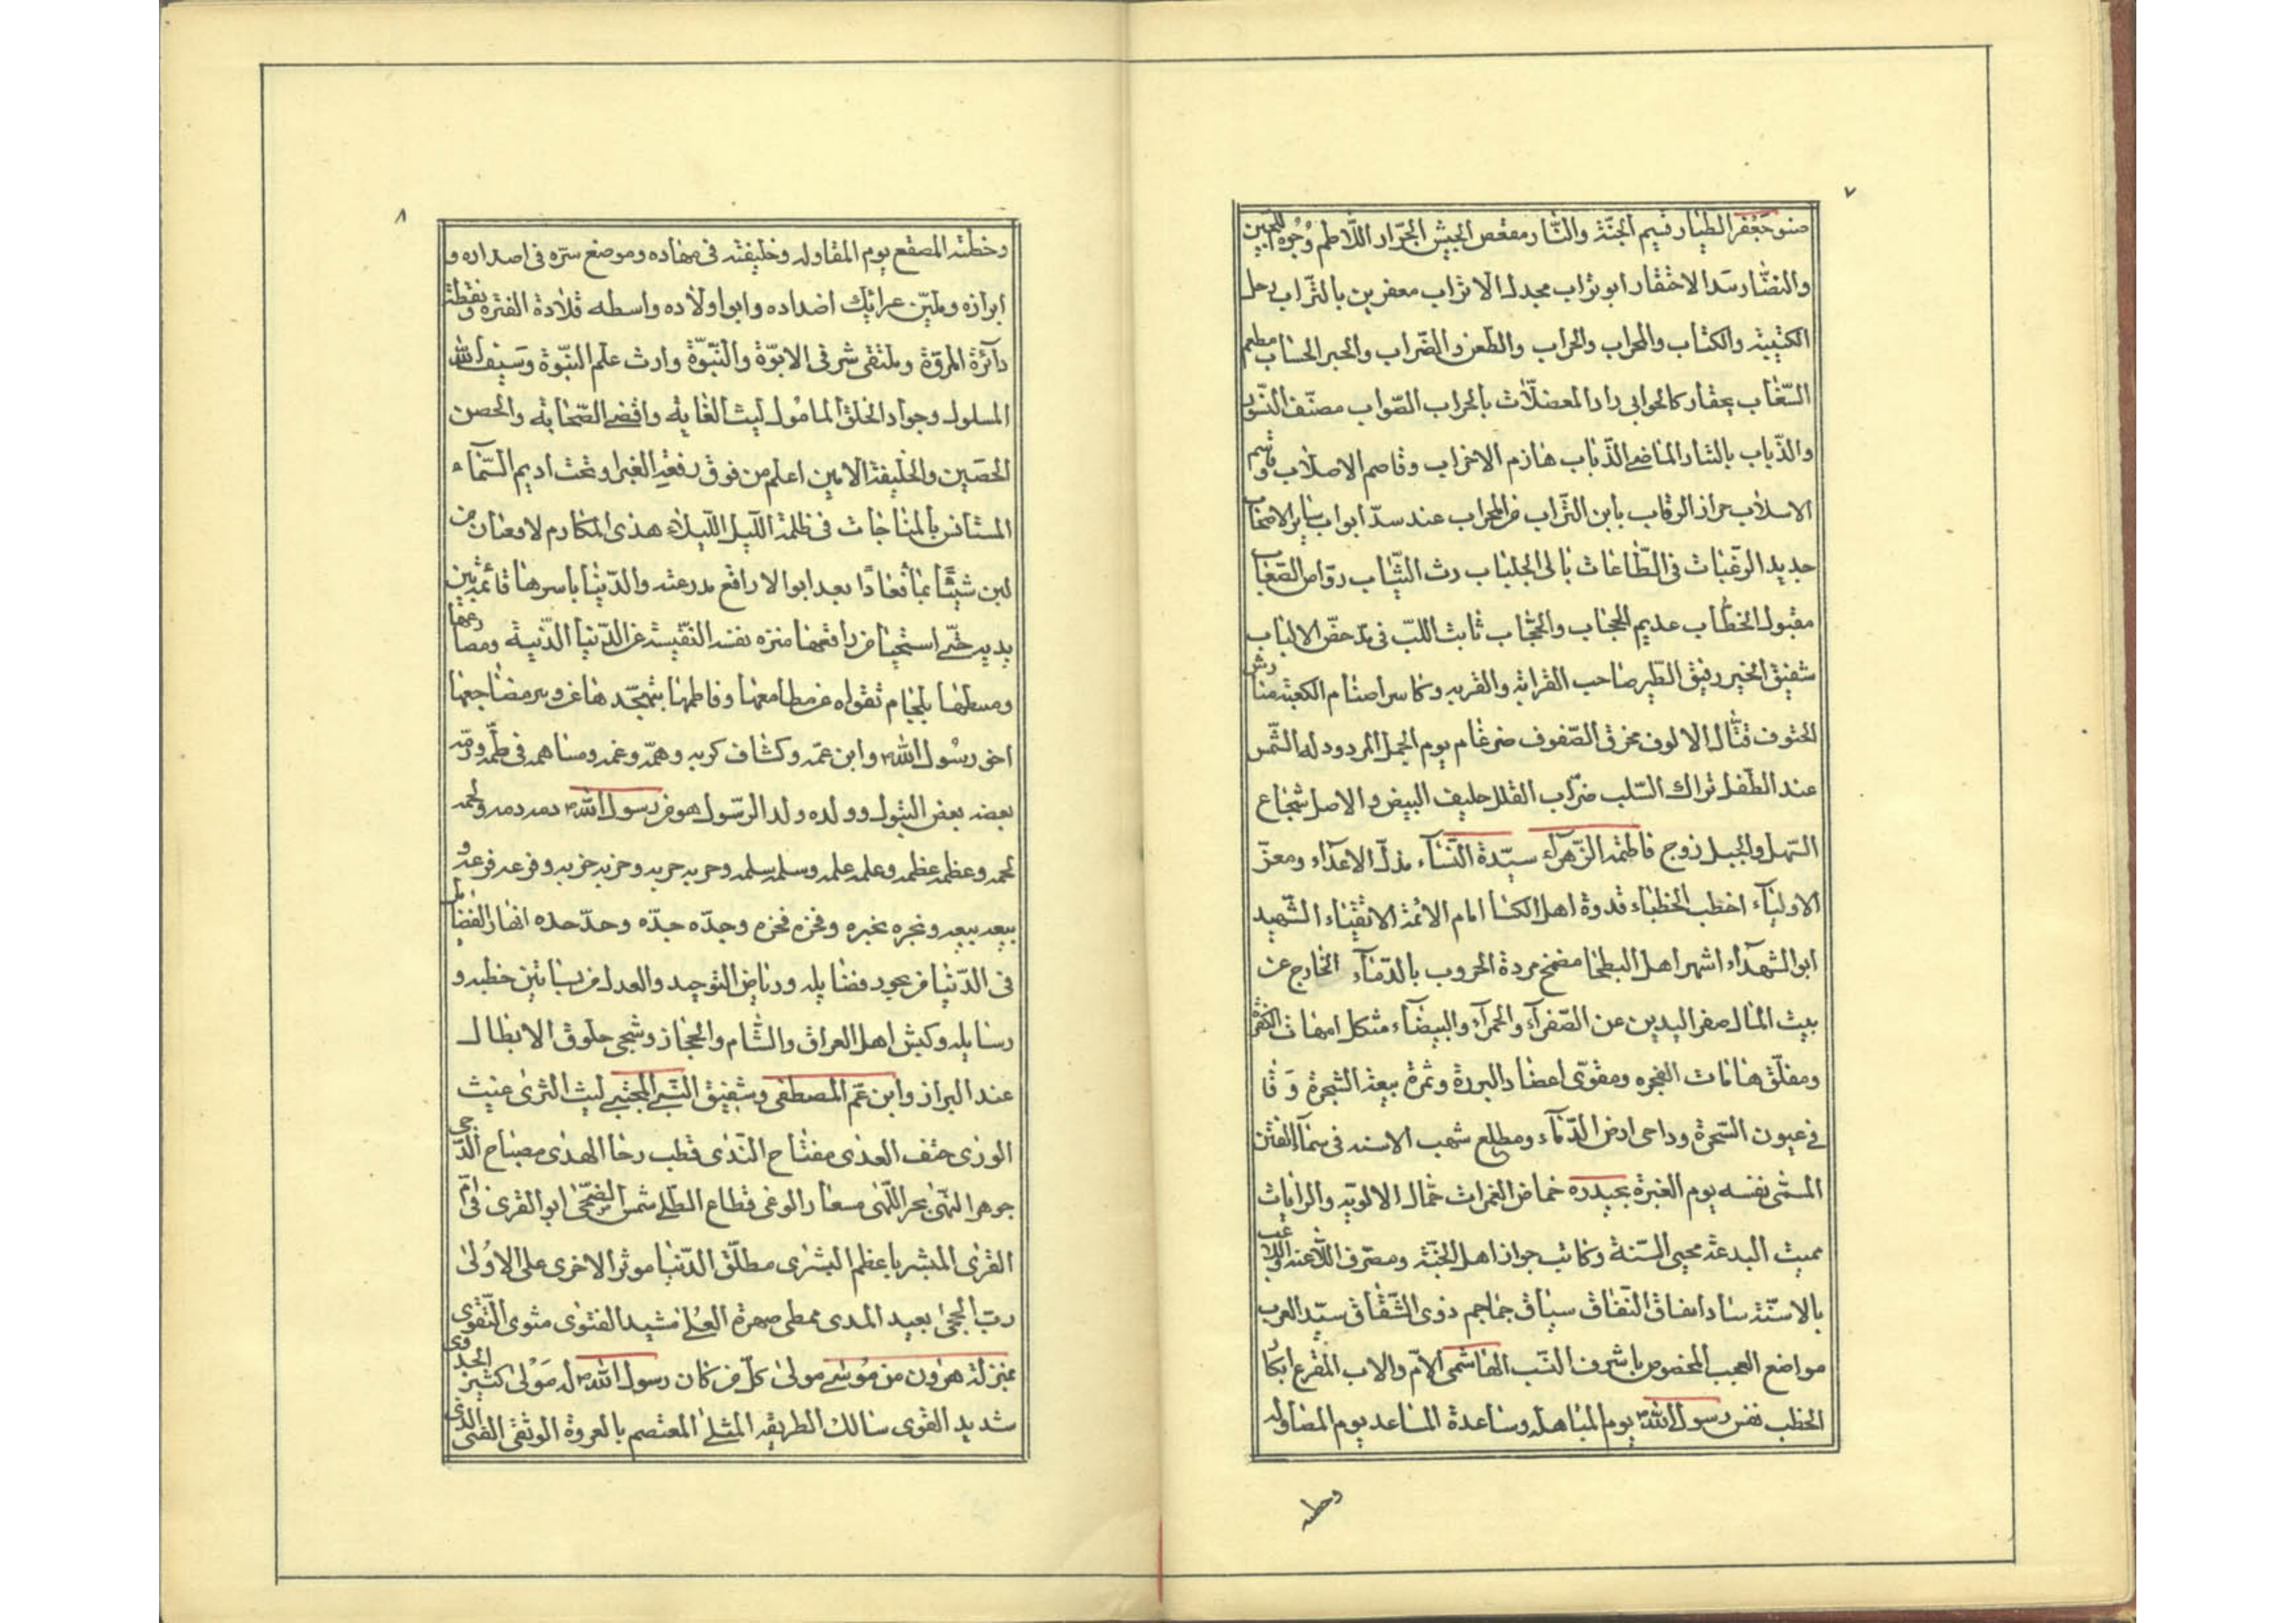 ٧
صنو جعفر الطيار قسيم الجنة والنار مقعص الجيش الجرار اللاطم وجوه اللجين
والنضار سد الاحتقار ابو تراب مجدل الاتراب معفرين بالتراب رجل
الكتيبة والكتاب والمحراب والحراب والطعن والضراب والحبر الحساب مطعم
السغاب بجفان كالجوابي راد المعضلات بالجواب الصواب مصنف النسور
والذباب بالبتار الماضي الذباب هازم الاحزاب وقاصم الاصلاب وقاسم
الاسلاب حراز الرقاب باين التراب من المحراب عند سد ابواب ساير الاصحاب
جديد الرغبات في الطاعات بالى الجلباب رث الثياب رواض الصعاب
مقبول الخطاب عديم الحجاب والحجاب ثابت اللب في مدحض الالباب
شقيق الخير رفيق الطير صاحب القرابة والقربه وكاسر اصنام الكعبة مناوش
الحتوف قتال الالوف مخرق الصفوف ضرغام يوم الجمل المردود له الشمس
عند الطفل تراك السلب ضراب القلل حليف البيض و الاصل شجاع
السهل والجبل زوج فاطمة الزهرآء سيدة النسآء مذل الاعدآء ومعز
الاوليآء اخطب الخطباء قدوة اهل الكسا امام الائمة الاتقياء الشهيد
ابو الشهدآء اشهر اهل البطحا مضمخ مردة الحروب بالدمآء الخارج عن
بيت المال صفر اليدين عن الصفرآء والحمرآء والبيضآء مثكل امهات الكفرة
ومفلق هامات الفجره ومقوى اعضاد البررة وثمرة بيعة الشجرة و قا
في عيون السحرة وداحى ارض الدمآء ومطلع شهب الاسنه في سمآء الفتن
المسمى نفسه يوم الغبرة بحيدره خماض الغمرات حمال الالويه والرايات
مميت البدعة محيى السنة وكاتب جواز اهل الجنة ومصرف الاعنه واللاعب
بالاسنة ساد انفاق النفاق سياق جماجم ذوى الشقاق سيد العرب
مواضع العجب المخصوص باشرف النسب الهاشمى الام والاب المقرع ابكار
الخطب نفس رسول الله يوم المباهله وساعدة المساعد يوم المصاوله
وخطبه
٨
وخطبته المصقع يوم المقاوله وخليفته في مهاده وموضع سره في اصداره و
ابرازه وملين عرائك اضداده وابو اولاده واسطه قلادة الفترة ونقطة
دآئرة المروة وملتقى شرفى الابوة والنبوة وارث علم النبوة وسيف الله
المسلول وجواد الخلق المامول ليث الغابة واقضى الصحابة والحصن
الحصين والخليفة الامين اعلم من فوق رقعة الغبرا وتحت اديم السمآء
المستانس بالمناجات في ظلمة الليل الليلاء هذى المكارم لا قعبان من
لبن شيبا بمآ فعادا بعد ابوالا راقع مدرعته والدنيا باسرها قائمة بين
يديه حتى استحيا من راقعها منزه نفسه النفيسة عن الدنيا الدنية ومصارعها
وممسكها بلجام تقواه عن مطامعها وفاطمها بتهجده ها عن وبر مضاجعها
اخى رسول الله وابن عمه وكشاف كربه وهمه وغمه ومساهمه في طمه ورمه
بعضه بعض البتول وولده ولد الرسول هو من رسول الله دمه دمه ولحمه
لحمه وعظمه عظمه وعلمه علمه وسلمه سلمه وحربه حربه وحزبه حزبه وفرعه فرعه و
بيعه بيعه ونجره نجره وفخره فخره وجده جده وحده حده انهار الفضايل
في الدنيا من بحور فضايله ورياض التوحيد والعدل من بساتين خطبه و
رسايله وكبش اهل العراق والشام والحجاز وشجى حلوق الابطال
عند البراز وابن عم المصطفى وشقيق النبى المجتبى ليث الثرى غيث
الورى حتف العدى مفتاح الندى قطب رحا الهدى مصباح الدجى
جوهر النهى بحر اللهى مسعار الوغى قطاع الطلى شمس الضحى ابو القرى في ام
القرى المبشر باعظم البشرى مطلق الدنيا موثر الاخرى على الاولى
رب الحجى بعيد المدى ممطى صهوة العلى مشيد الفتوى مثوى التقوى
بمنزلة هرون من موسى مولى كل من كان رسول الله له مولى كثير الجدوى
شديد القوى سالك الطريقه المثلى المعتصم بالعروة الوثقى الفتى الذى